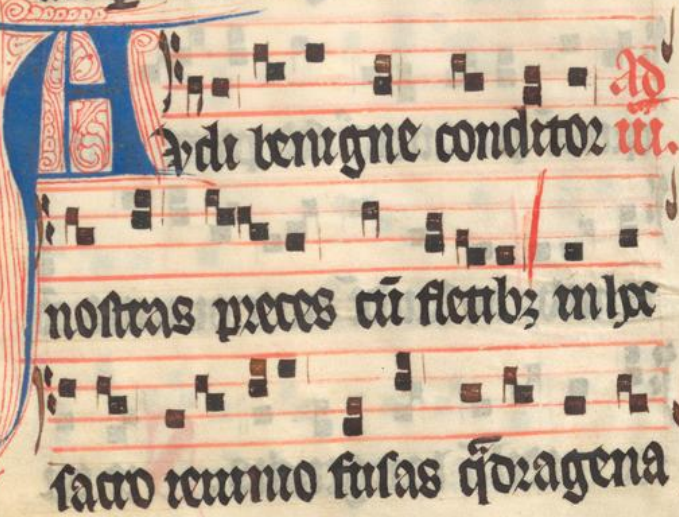 Audi benigne conditor Ad iii.
nostras preces cū fletibꝫ in hoc
sacro ieiunio fusas qͣdragena